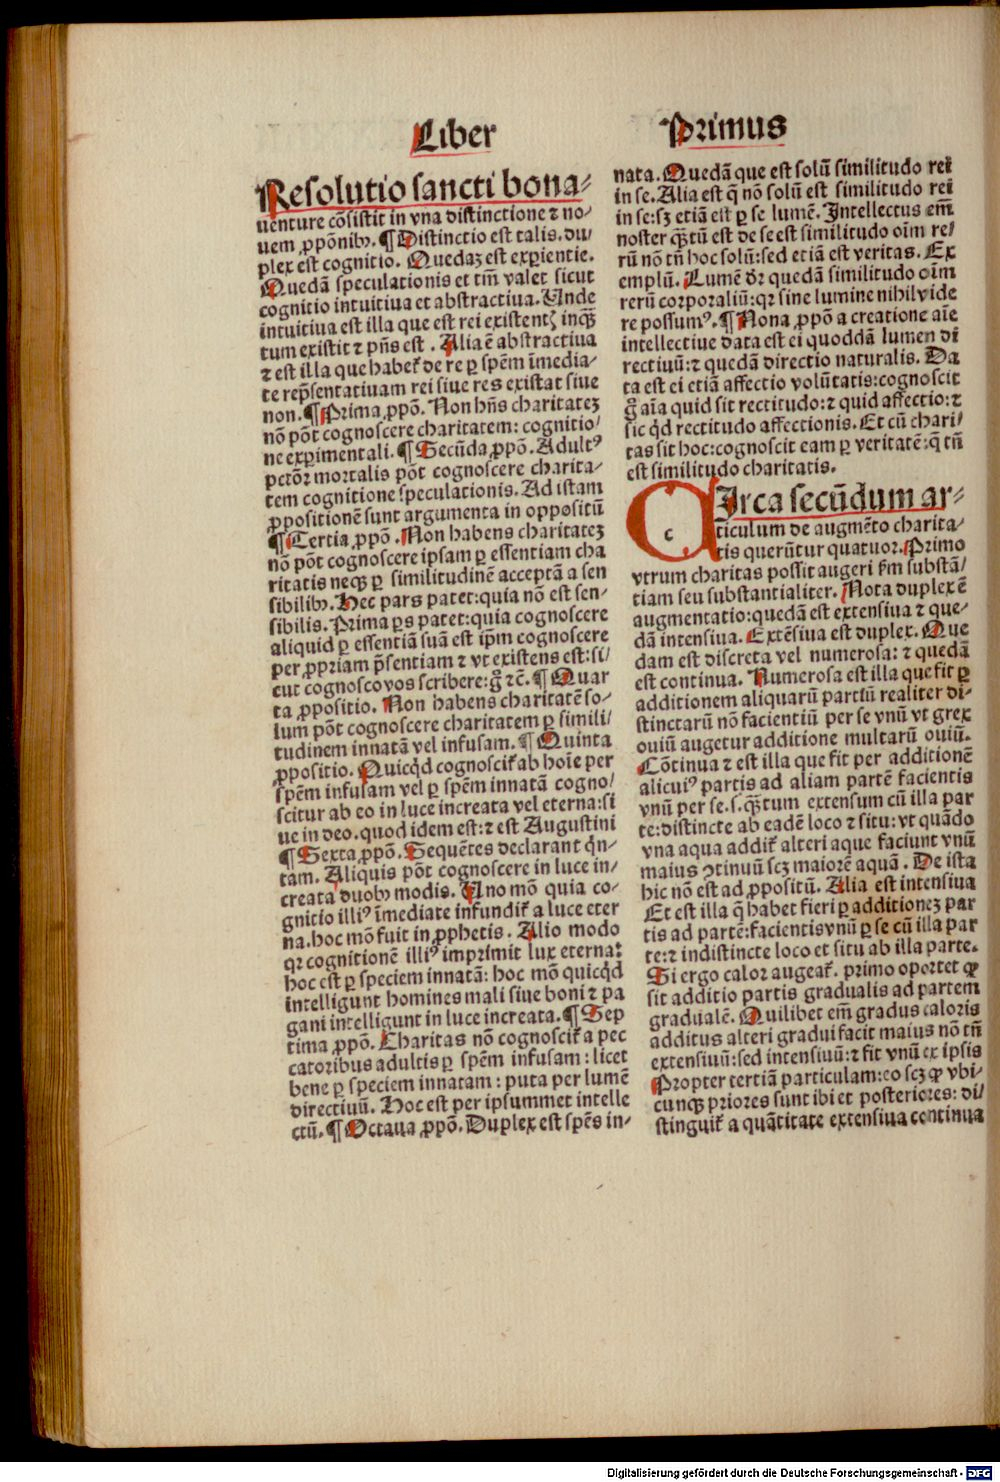 Liber
Primus
Resolutio sancti bona⸗
uenture cõsistit in vna distinctione ⁊ no/
uem ꝓpõnibꝰ. ¶ Distinctio est talis. du/
plex est cognitio. Quedaꝫ est exꝑientie.
Quedã speculationis et tm̃ valet sicut
cognitio intuitiua et abstractiua. Unde
intuitiua est illa que est rei existentꝭ inqȝ̃
tum existit ⁊ pñs est . Alia ẽ abstractiua
⁊ est illa que habet᷑ de re ꝑ spẽm ĩmedia⸗
te rep̃sentatiuam rei siue res existat siue
non. ¶ Prima ꝓpõ. Non hñs charitateꝫ
nõ põt cognoscere charitatem: cognitio/
ne exꝑimentali. ¶ Secũda ꝓpõ. Adultꝰ
pctõꝛ mortalis põt cognoscere charita⸗
tem cognitione speculationis. Ad istam
ꝓpositionẽ sunt argumenta in oppositũ
¶ Tertia ꝓpõ . Non habens charitateꝫ
nõ põt cognoscere ipsam ꝑ essentiam cha
ritatis neqꝫ ꝑ similitudinẽ acceptã a sen
sibilibꝰ. Hec pars patet: quia nõ est sen⸗
sibilis. Prima ꝑs patet: quia cognoscere
aliquid ꝑ essentiã suã est ip̃m cognoscere
per ꝓpriam p̃sentiam ⁊ vt existens est: si/
cut cognosco vos scribere: g̃ ⁊c̃. ¶ Quar
ta ꝓpositio. Non habens charitatẽ so⸗
lum põt cognoscere charitatem ꝑ simili/
tudinem innatã vel infusam. ¶ Quinta
ꝓpositio. Quicq̇d cognoscit᷑ ab hoĩe per
spẽm infusam vel ꝑ spẽm innatã cogno/
scitur ab eo in luce increata vel eterna: si
ue in deo. quod idem est: ⁊ est Augustini
¶ Sexta ꝓpõ. Sequẽtes declarant q̇n⸗
tam. Aliquis põt cognoscere in luce in⸗
creata duobꝰ modis. Uno mõ quia co⸗
gnitio illiꝰ ĩmediate infundit᷑ a luce eter
na. hoc mõ fuit in ꝓphetis. Alio modo
qꝛ cognitionẽ illiꝰ imprimit lux eterna:
hoc est ꝑ speciem innatã: hoc mõ quicq̇d
intelligunt homines mali siue boni ⁊ pa
gani intelligunt in luce increata. ¶ Sep
tima ꝓpõ. Charitas nõ cognoscit᷑ a pec
catoribus adultis ꝑ spẽm infusam: licet
bene ꝑ speciem innatam: puta per lumẽ
directiuũ. Hoc est per ipsummet intelle
ctũ. ¶ Octaua ꝓpõ. Duplex est spẽs in⸗
nata. Quedã que est solũ similitudo rei
in se. Alia est q̃ nõ solũ est similitudo rei
in se: sꝫ etiã est ꝑ se lumẽ. Intellectus em̃
noster qȝ̃tũ est de se est similitudo oĩm re/
rũ nõ tñ hoc solũ: sed etiã est veritas. Ex
emplũ. Lumẽ dꝛ quedã similitudo oĩm
rerũ corporaliũ: qꝛ sine lumine nihil vide
re possumꝰ. ¶ Nona ꝓpõ a creatione aĩe
intellectiue data est ei quoddã lumen di
rectiuũ: ⁊ quedã directio naturalis. Da
ta est ei etiã affectio volũtatis: cognoscit
g̃ aĩa quid sit rectitudo: ⁊ quid affectio: ⁊
sic q̇d rectitudo affectionis. Et cũ chari/
tas sit hoc: cognoscit eam ꝑ veritatẽ: q̃ tñ
est similitudo charitatis.
c
CIrca secũdum ar⸗
ticulum de augmẽto charita/
tis querũtur quatuor. Primo
vtrum charitas possit augeri ẜm substã/
tiam seu substantialiter. Nota duplex ẽ
augmentatio: quedã est extensiua ⁊ que⸗
dã intensiua. Extẽsiua est duplex. Que
dam est discreta vel numerosa: ⁊ quedã
est continua. Numerosa est illa que fit ꝑ
additionem aliquarũ partiũ realiter di⸗
stinctarũ nõ facientiũ per se vnũ vt grex
ouiũ augetur additione multarũ ouiũ.
Cõtinua ⁊ est illa que fit per additionẽ
alicuiꝰ partis ad aliam partẽ facientis
vnũ per se. s. qȝ̃tum extensum cũ illa par
te: distincte ab eadẽ loco ⁊ situ: vt quãdo
vna aqua addit᷑ alteri aque faciunt vnũ
maius ꝯtinuũ scꝫ maiorẽ aquã . De ista
hic nõ est ad ꝓpositũ. Alia est intensiua
Et est illa q̃ habet fieri ꝑ additioneꝫ par
tis ad partẽ: facientis vnũ ꝑ se cũ illa par
te: ⁊ indistincte loco et situ ab illa parte.
Si ergo calor augeat᷑. primo oportet ꝙ
sit additio partis gradualis ad partem
gradualẽ. Quilibet em̃ gradus caloris
additus alteri gradui facit maius nõ tñ
extensiuũ: sed intensiuũ: ⁊ fit vnũ ex ipsis
Propter tertiã particulam: eo scꝫ ꝙ vbi⸗
cunqꝫ priores sunt ibi et posteriores: di/
stinguit᷑ a quãtitate extensiua continua
Digitalisierung gefördert durch die Deutsche Forschungsgemeinschaft - DFG